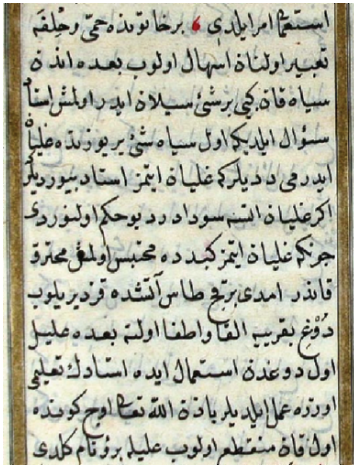 استعمال امر ایلدی ۶ بر خاتونده حمی و حلقه
تعبیر اولنان اسهال اولوب بعده اندن
سیاه قان کبی بر شئ سیلان ایدر اولمش استاد
سؤال ایلدیکه اول سیاه شئ یر یوزنده غلیان
ایدرمی دیدیلرکه غلیان ایتمز استاد بیوردیلر
اکر غلیان ایتسه سودادر دیو حکم اولنوردی
چونکه غلیان ایتمز کبدده محتبس اولمش محترق
قاندر امدی بر قچ طاش آتشده قزدیریلوب
دوغ بقریه القا واطفا اولنه بعده علیل
اول دوغدن استعمال ایده استادک تعلیمی
اوزره عمل ایلدیلر باذن الله تعالی اوچ کونده
اول قان منقطع اولوب علیله برؤ تام کلدی